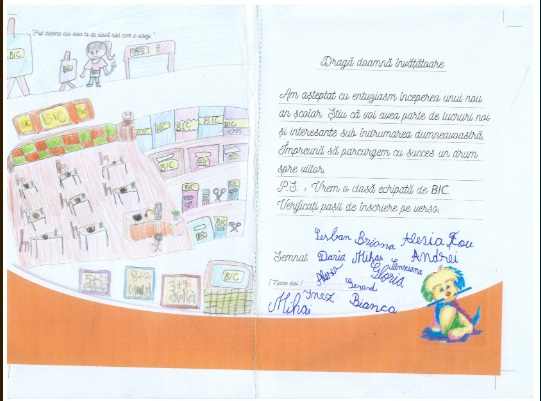 "Pot desena aici sala ta de clasă așa cum o visezi."
BIC
BIC
BIC
BIC
BIC
BIC
BIC
BIC
BIC
BIC
Dragă doamnă învățătoare
Am așteptat cu entuziasm începerea unui nou
an școlar. Știu că voi avea parte de lucruri noi
și interesante sub îndrumarea dumneavoastră.
Împreună să parcurgem cu succes un drum
spre viitor.
P.S. : Vrem o clasă echipată de BIC.
Verificați pașii de înscriere pe verso.
Șerban Briana Alesia
Semnat Daria Mihai Andrei
Gloria
Gerard
Mihai Inez Bianca